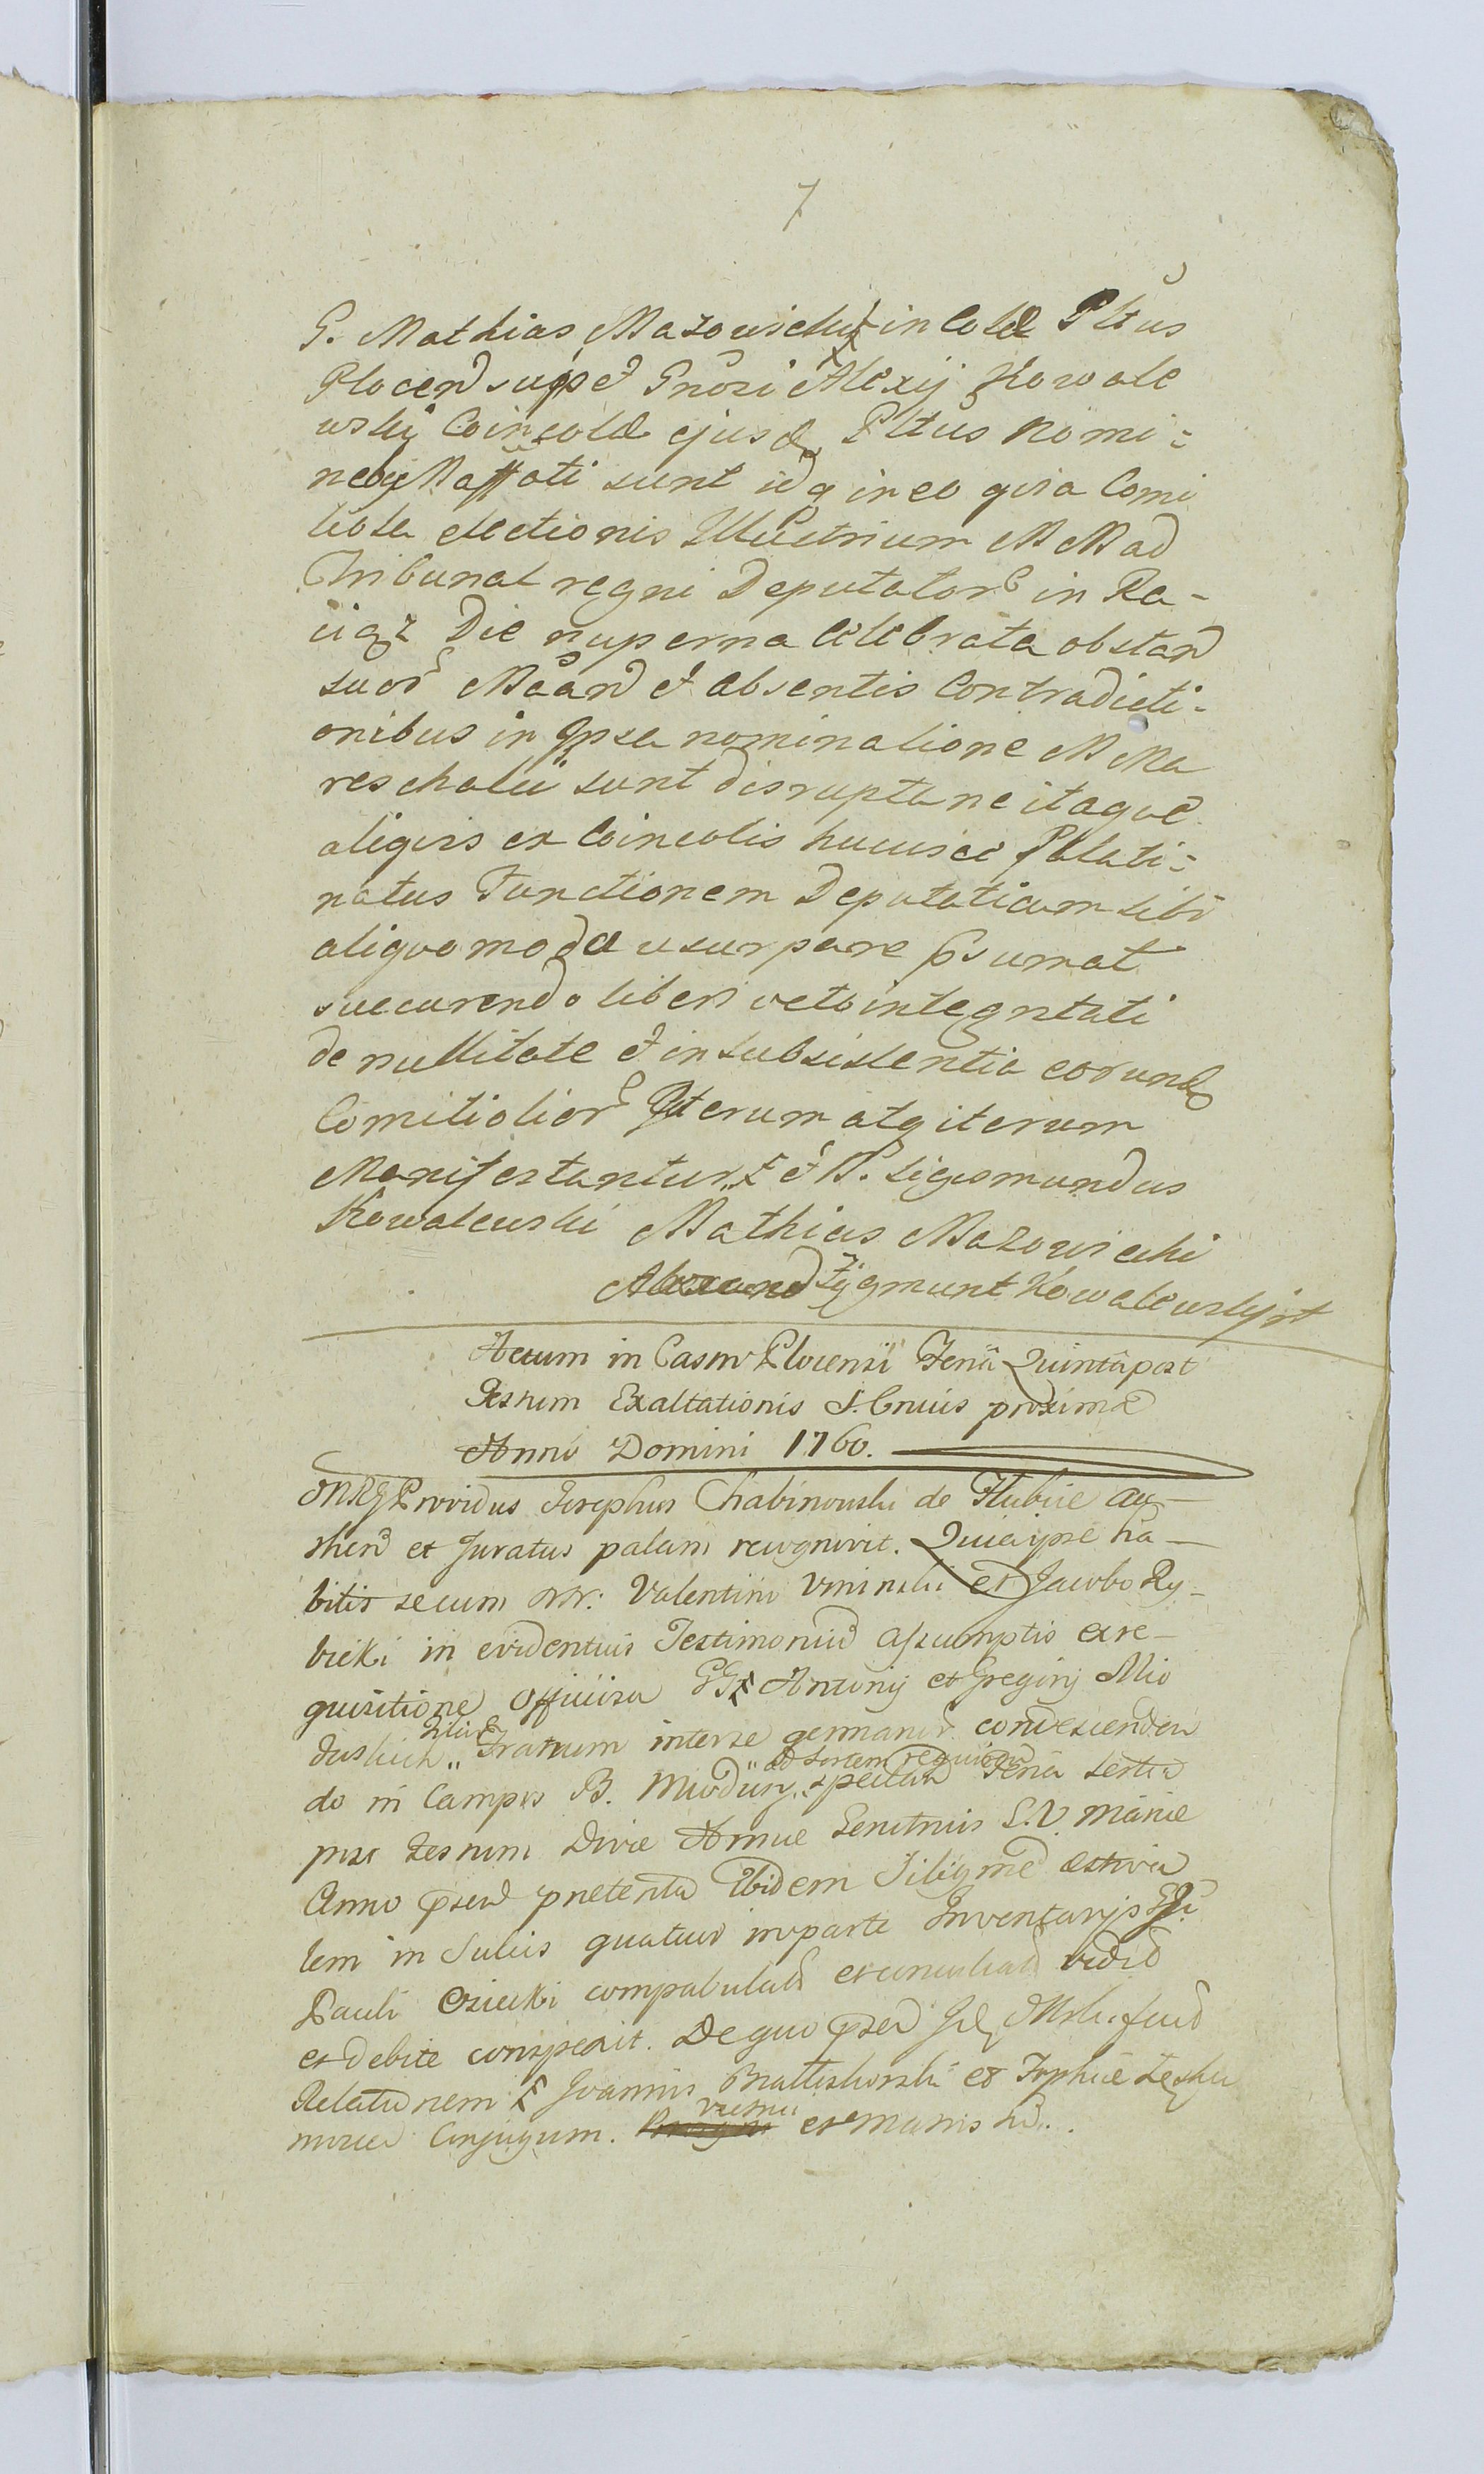 7
G. Mathias Mazowiecki incola Pltus
Plocen suo et Gnosi Alexij Kowale
wski Coincola ejusd Pltus nomi=
neby Maffati sunt idq in eo qvia Comi
tiola electionis Illustrium MM ad
Tribunal regni Deputator in Ra-
ciąz Die nuperna celebrata obstan
suor Maan et absentis Contradicti-
onibus in Ipsa nominatione M Ma
reschalii sunt disrupta ne itaque
aliqvis ex Coincolis hucusce Palati=
natus Functionem Deputaticam sibi
aliqvo modo usurpare psumat
succurendo liberi veto integritati
de nullitate et insubsistentia eorund
Comitiolior Iterum atq iterum
Manifestantur et M. Sigismundus
Kowalewski Mathias Mazowiecki
Zygmunt Kowalewski
Actum in Castro Plocensi Feria Quinta post
Festum Exaltationis S. Crucis proxima
Anno Domini 1760.
Providus Josephus Chabinowski de Hlubie au-
then et Juratus palam recognovit. Quia ipse ha-
bitis secum NN: Valentino Uminski et Jacobo Ry-
bicki in evidentius Testimoniu assumptis ex re-
quisitione officiosa GG Antonij et Gregorij Mio
duskich Fratrum inter se germanor condescenden
do in Campis B. Miodusy ad sortem requiren spectan Feria tertia
post Festum Divae Annae Genitricis S.V. Mariae
Anno psen praeterita Ibidem Siligine aestiva
lem in Sulcis quatuor in parte Inventarijs
Pauli Osiecki compabulat et conculcat vidit
et debite conspexit. De quo psen suad
Relationem Joannis et Sophiae
Conjugum. et manis